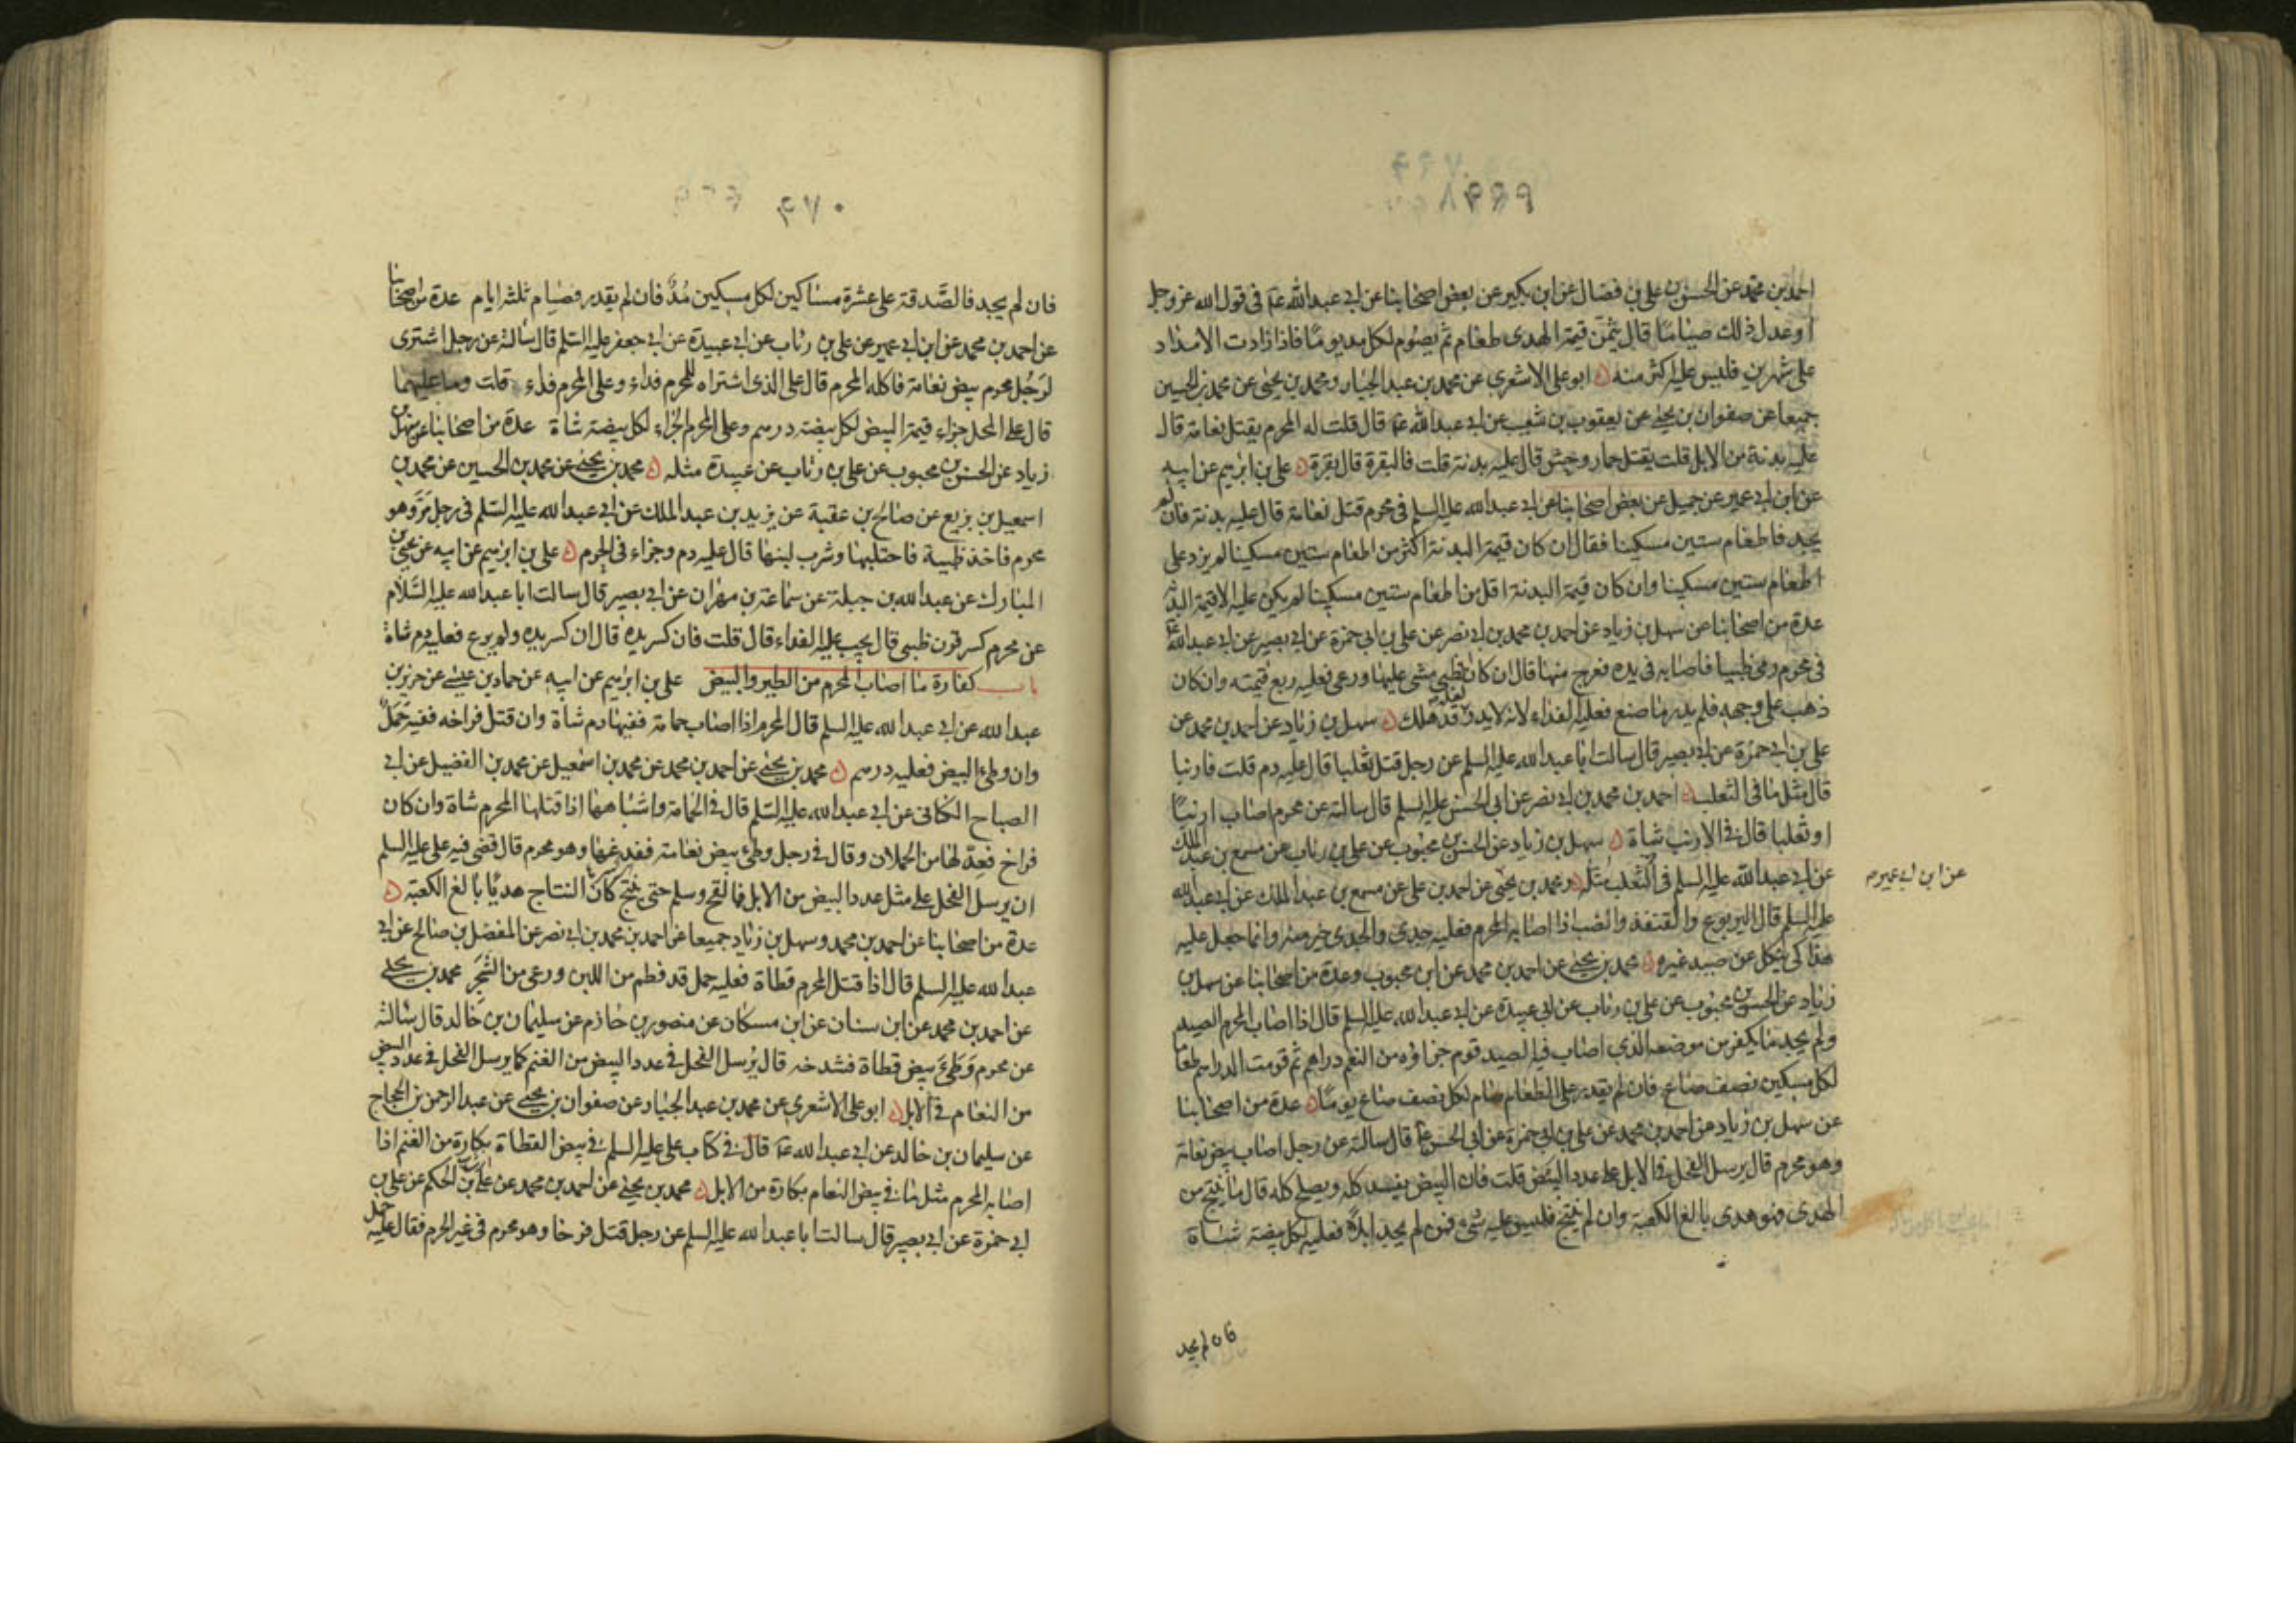 احمد بن محمد عن الحسن بن علي بن فضال عن ابن بكير عن بعض اصحابنا عن ابي عبد الله عم في قول الله عز وجل
او عدل ذلك صياما قال يثمن قيمة الهدى طعام ثم يصوم لكل مد يوما فاذا زادت الامداد
على شهرين فليس عليه اكثر منه ابو علي الاشعري عن محمد بن عبد الجبار ومحمد بن يحيى عن محمد بن الحسين
جميعا عن صفوان بن يحيى عن يعقوب بن شعيب عن ابي عبد الله عم قال قلت له المحرم يقتل نعامة قال
عليه بدنة من الابل قلت يقتل حمار وحش قال عليه بدنة قلت فالبقرة قال بقرة علي بن ابرهيم عن ابيه
عن ابن ابي عمير عن جميل عن بعض اصحابنا عن ابي عبد الله عليه السلم في محرم قتل نعامة قال عليه بدنة فان لم
يجد فاطعام ستين مسكينا فقال ان كان قيمة البدنة اكثر من اطعام ستين مسكينا لم يزد على
اطعام ستين مسكينا وان كان قيمة البدنة اقل من اطعام ستين مسكينا لم يكن عليه الا قيمة البدنة
عدة من اصحابنا عن سهل بن زياد عن احمد بن محمد بن ابي نصر عن علي بن ابي حمزة عن ابي بصير عن ابي عبد الله عم
في محرم رمى ظبيا فاصابه في يده فعرج منها قال ان كان الظبي مشى عليها ورعى فعليه ربع قيمته وان كان
ذهب على وجهه فلم يدر ما صنع فعليه الفداء لانه لا يدري لعله قد هلك سهل بن زياد عن احمد بن محمد عن
علي بن ابي حمزة عن ابي بصير قال سالت ابا عبد الله عليه السلم عن رجل قتل ثعلبا قال عليه دم قلت فارنبا
قال مثل ما في الثعلب احمد بن محمد بن ابي نصر عن ابي الحسن عليه السلم قال سالته عن محرم اصاب ارنبا
او ثعلبا قال في الارنب شاة سهل بن زياد عن الحسن بن محبوب عن علي بن رئاب عن مسمع بن عبد الملك
عن ابي عبد الله عليه السلم في الثعلب مثله ومحمد بن يحيى عن احمد بن علي عن مسمع بن عبد الملك عن ابي عبد الله
عن ابن ابي عمير م
عليه السلم قال اليربوع والقنفذ والضب اذا اصابه المحرم فعليه جدي والجدي خير منه وانما جعل عليه
هذا كي ينكل عن صيد غيره محمد بن يحيى عن احمد بن محمد عن ابن محبوب وعدة من اصحابنا عن سهل بن
زياد عن الحسن بن محبوب عن علي بن رئاب عن ابي عبيدة عن ابي عبد الله عليه السلم قال اذا اصاب المحرم الصيد
ولم يجد ما يكفر من موضعه الذي اصاب فيه الصيد قوم جزاؤه من النعم دراهم ثم قومت الدراهم طعاما
لكل مسكين نصف صاع فان لم يقدر على الطعام صام لكل نصف صاع يوما عدة من اصحابنا
عن سهل بن زياد عن احمد بن محمد عن علي بن ابي حمزة عن ابي الحسن عم قال سالته عن رجل اصاب بيض نعامة
وهو محرم قال يرسل الفحل في الابل على عدد البيض قلت فان البيض يفسد كله ويصلح كله قال ما ينتج من
الهدى فهو هدى بالغ الكعبة وان لم ينتج فليس عليه شئ فمن لم يجد ابلا فعليه لكل بيضة شاة
فان لم يجد
٦٧٠
فان لم يجد فالصدقة على عشرة مساكين لكل مسكين مد فان لم يقدر فصيام ثلثة ايام عدة من اصحابنا
عن احمد بن محمد عن ابن ابي عمير عن علي بن رئاب عن ابي عبيدة عن ابي جعفر عليه السلم قال سالته عن رجل اشترى
لرجل محرم بيض نعامة فاكله المحرم قال على الذي اشتراه للمحرم فداء وعلى المحرم فداء قلت وما عليهما
قال على المحل جزاء قيمة البيض لكل بيضة درهم وعلى المحرم الجزاء لكل بيضة شاة عدة من اصحابنا عن سهل بن
زياد عن الحسن بن محبوب عن علي بن رئاب عن عبيدة مثله محمد بن يحيى عن محمد بن الحسين عن محمد بن
اسمعيل بن بزيع عن صالح بن عقبة عن يزيد بن عبد الملك عن ابي عبد الله عليه السلم في رجل مر وهو
محرم فاخذ ظبية فاحتلبها وشرب لبنها قال عليه دم وجزاء في الحرم علي بن ابرهيم عن ابيه عن يحيى بن
المبارك عن عبد الله بن جبلة عن سماعة بن مهران عن ابي بصير قال سالت ابا عبد الله عليه السلام
عن محرم كسر قرن ظبي قال يجب عليه الفداء قال قلت فان كسر يده قال ان كسر يده ولم يرع فعليه دم شاة
باب كفارة ما اصاب المحرم من الطير والبيض علي بن ابرهيم عن ابيه عن حماد بن عيسى عن حريز بن
عبد الله عن ابي عبد الله عليه السلم قال المحرم اذا اصاب حمامة ففيها دم شاة وان قتل فراخه ففيه حمل
وان وطئ البيض فعليه درهم محمد بن يحيى عن احمد بن محمد عن محمد بن اسمعيل عن محمد بن الفضيل عن ابي
الصباح الكناني عن ابي عبد الله عليه السلم قال في الحمامة واشباهها اذا قتلها المحرم شاة وان كان
فراخ فعدلها من الحملان وقال في رجل وطئ بيض نعامة ففدغها وهو محرم قال قضى فيه علي عليه السلم
ان يرسل الفحل على مثل عدد البيض من الابل فما لقح وسلم حتى ينتج كان النتاج هديا بالغ الكعبة
عدة من اصحابنا عن احمد بن محمد وسهل بن زياد جميعا عن احمد بن محمد بن ابي نصر عن المفضل بن صالح عن ابي
عبد الله عليه السلم قال اذا قتل المحرم قطاة فعليه حمل قد فطم من اللبن ورعى من الشجر محمد بن يحيى
عن احمد بن محمد عن ابن سنان عن ابن مسكان عن منصور بن حازم عن سليمان بن خالد قال سالته
عن محرم وطئ بيض قطاة فشدخه قال يرسل الفحل في عدد البيض من الغنم كما يرسل الفحل في عدد البيض
من النعام في الابل ابو علي الاشعري عن محمد بن عبد الجبار عن صفوان بن يحيى عن عبد الرحمن بن الحجاج
عن سليمان بن خالد عن ابي عبد الله عم قال في كتاب علي عليه السلم في بيض القطاة بكارة من الغنم اذا
اصابه المحرم مثل ما في بيض النعام بكارة من الابل محمد بن يحيى عن احمد بن محمد عن علي بن الحكم عن علي بن
ابي حمزة عن ابي بصير قال سالت ابا عبد الله عليه السلم عن رجل قتل فرخا وهو محرم في غير الحرم فقال عليه حمل